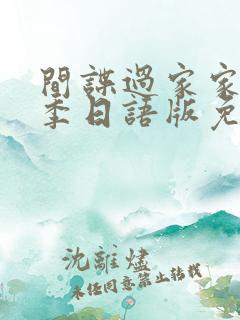 間諜過家家
季日語版免
沈離燼
未經同意禁止轉載